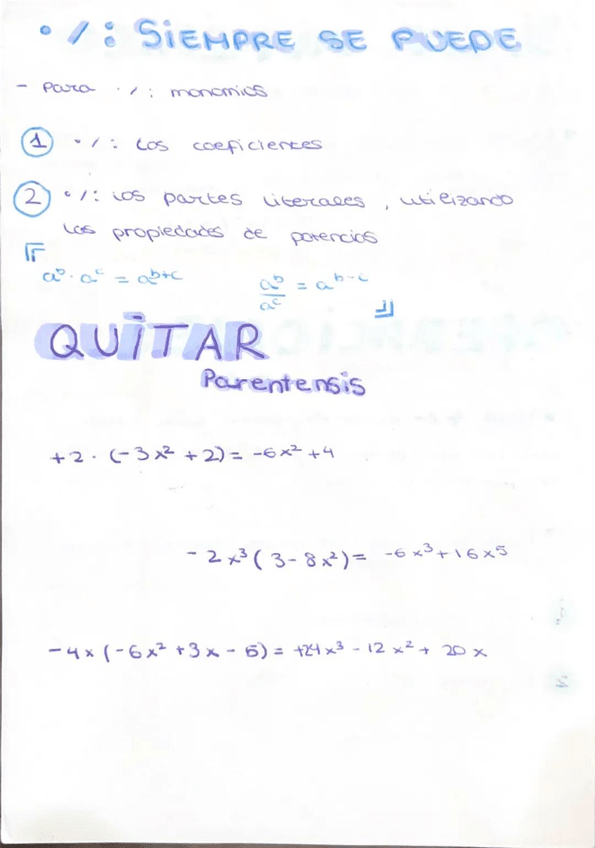 · / : SIEMPRE SE PUEDE
- Para · / : monomios
1 · / : Los coeficientes
2 · / : Los partes literales, utilizando
Las propiedades de potencias
a^b · a^c = a^b+c
a^b/a^c = a^b-c
QUITAR
Parentensis
+2 · (-3x² + 2) = -6x² + 4
- 2x³ ( 3 - 8x²) = -6x³ + 16x⁵
-4x (-6x² + 3x - 5) = +24x³ - 12x² + 20x